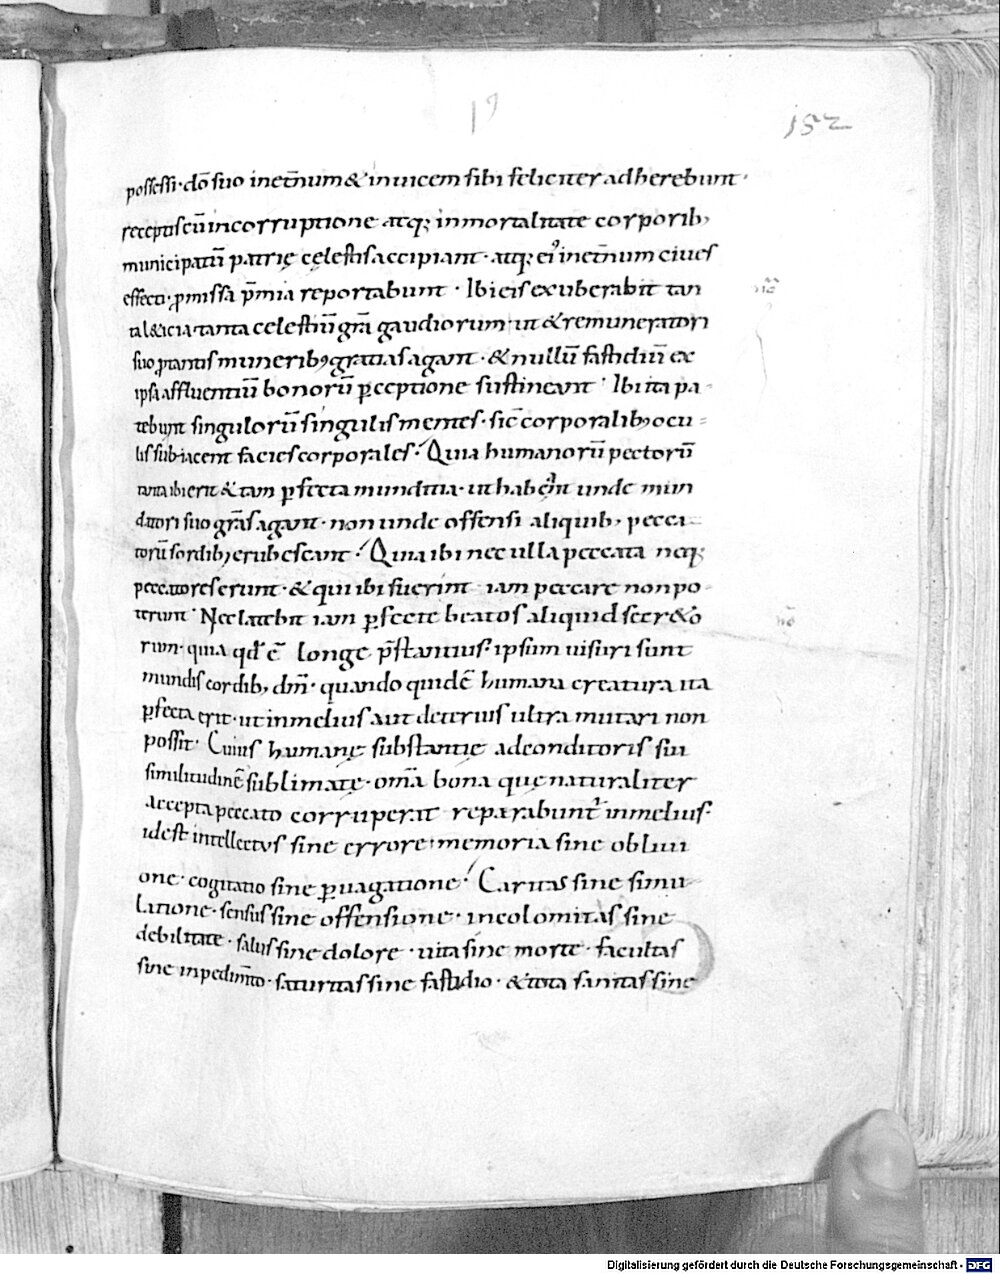 19
152
possessi · dō suo in et̄num & inuicem sibi feliciter adherebunt ·
receptis cū incorruptione atq; inmortalitate corporib;
municipatū patrię cęlestis accipiant · atq; ei' in et̄num ciues
effecti · p̄missa p̄mia reportabunt · Ibi eis exuberabit tan
ta l&icia · tanta celestiū gr̄a gaudiorum · ut & remuneratori
suo p tantis munerib; gratias agant · & nullū fastidiū ex
ipsa affluentiū bonorū pceptione sustineant · Ibi ita pa-
tebunt singulorū singulis mentes · sic corporalib; ocu-
lis subiacent facies corporales · Quia humanorū pectorū
tanta ibi erit & tam pfecta munditia · ut habeant unde mun
datori suo grās agant · non unde offensi aliquib; pecca-
torū sordib; erubescant · Quia ibi nec ulla peccata neq;
peccatores erunt · & qui ibi fuerint iam peccare non po-
terunt · Nec latebit iam pfecte beatos aliquid secr&o
rum · quia qd ē longe p̄stantius · ipsum uisuri sunt
mundis cordib; dm̄ · quando quidē humana creatura ita
pfecta erit · ut in melius aut deterius ultra mutari non
possit · Cuius humanę substantię ad conditoris sui
similitudinē sublimatę · om̄a bona quę naturaliter
accepta peccato corruperat reparabunt' in melius ·
id est intellectus sine errore · memoria sine obliui
one · cogitatio sine peruagatione · Caritas sine simu-
latione · sensus sine offensione · incolomitas sine
debilitate · salus sine dolore · uita sine morte · facultas
sine inpedim̄to · saturitas sine fastidio · & tota sanitas sine
Digitalisierung gefördert durch die Deutsche Forschungsgemeinschaft - DFG